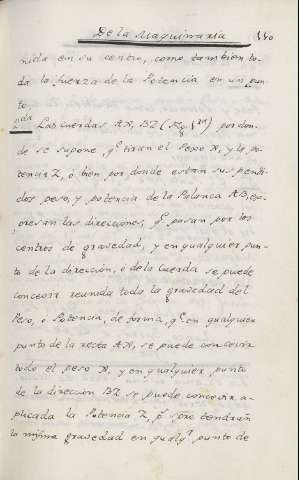 De la Maquinaria
140
nida en su centro, como tambien to-
da la fuerza de la Potencia en un pun
to.
2da Las cuerdas AX, BZ (Fig 1a) por don-
de se supone qe tiran el peso X, y la po-
tencia Z, ó bien por donde estan suspendi-
dos peso, y potencia de la Palanca AB, ex-
presan las direcciones, qe pasan por los
centros de gravedad, y en qualquier pun-
to de la dirección, ó de la Cuerda se puede
concevir reunida toda la gravedad del
Peso, ó Potencia, de forma, qe en qualquier
punto de la recta AX, se puede concevir
todo el peso X, y en qualquier punto
de la direccion BZ se puede concevir a-
plicada la Potencia Z, tendran
la misma gravedad en qualqr punto de